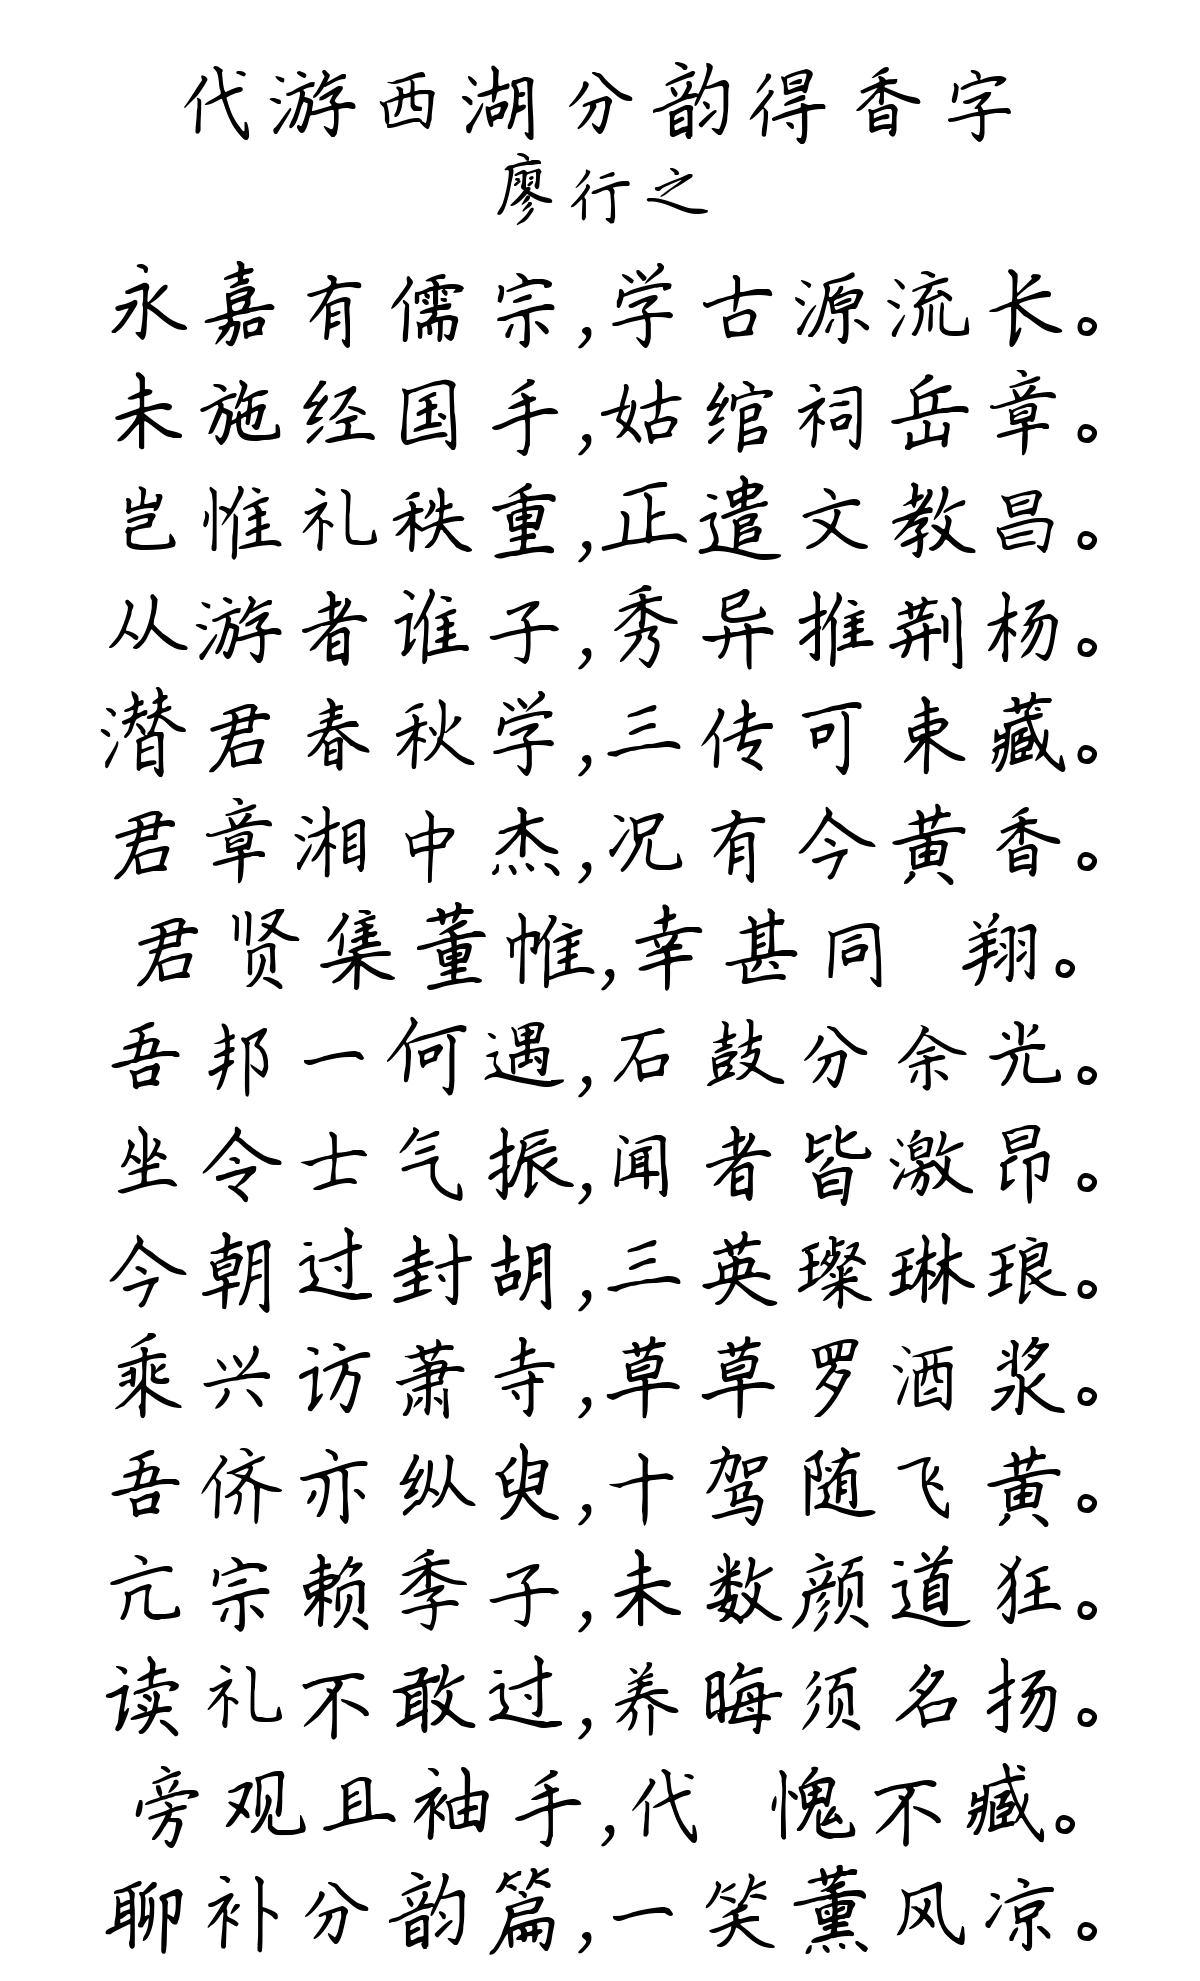 代游西湖分韵得香字
廖行之
永嘉有儒宗,学古源流长。
未施经国手,姑绾祠岳章。
岂惟礼秩重,正遣文教昌。
从游者谁子,秀异推荆杨。
潜君春秋学,三传可束藏。
君章湘中杰,况有今黄香。
君贤集董帷,幸甚同 翔。
吾邦一何遇,石鼓分余光。
坐令士气振,闻者皆激昂。
今朝过封胡,三英璨琳琅。
乘兴访萧寺,草草罗酒浆。
吾侪亦纵臾,十驾随飞黄。
亢宗赖季子,未数颜道狂。
读礼不敢过,养晦须名扬。
旁观且袖手,代 愧不臧。
聊补分韵篇,一笑薰风凉。